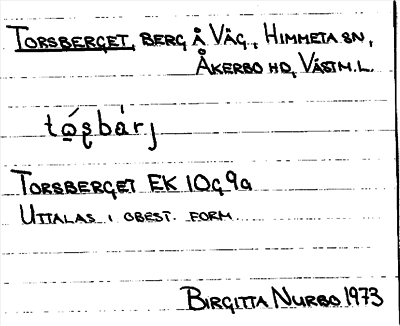 TORSBERGET, BERG Å VÄG., HIMMETA SN,
ÅKERBO HD, VÄSTM.L.
tó̱ʂbárj
TORSBERGET EK 10g9a
UTTALAS I OBEST. FORM
BIRGITTA NURBO 1973